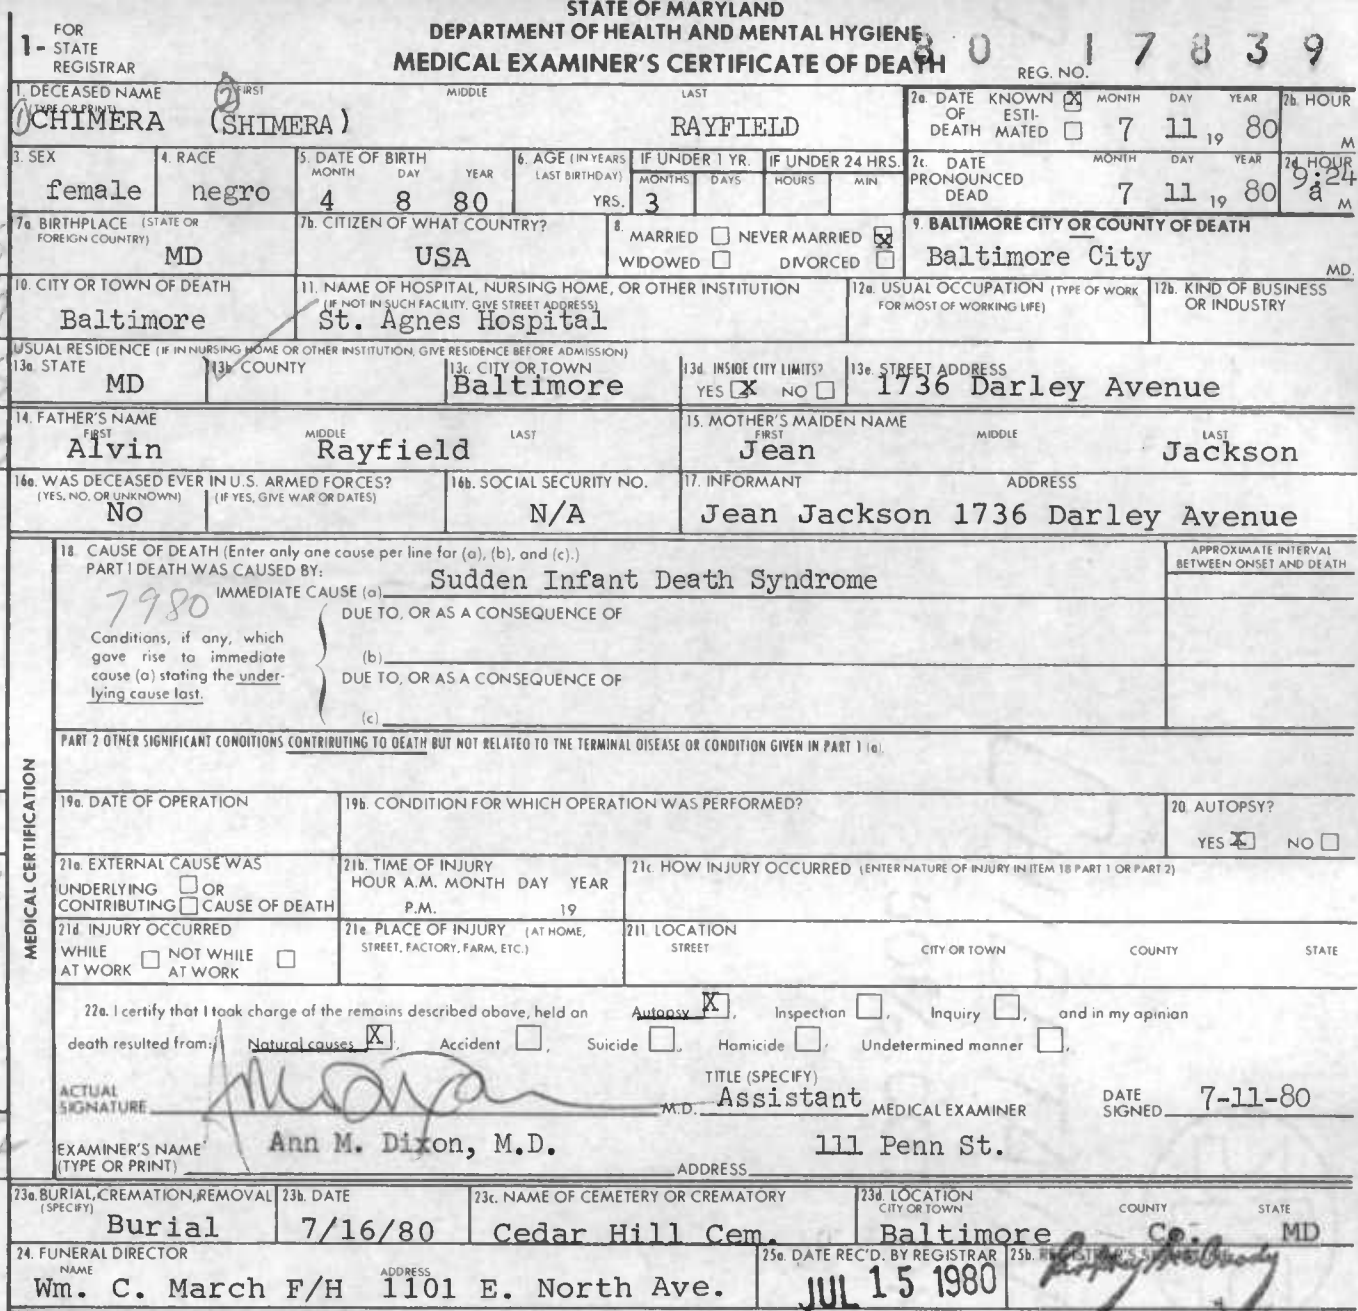 STATE OF MARYLAND
DEPARTMENT OF HEALTH AND MENTAL HYGIENE
MEDICAL EXAMINER'S CERTIFICATE OF DEATH
1- FOR STATE REGISTRAR
REG. NO. 80 17839
1. DECEASED NAME (TYPE OR PRINT) FIRST MIDDLE LAST
① CHIMERA ② (SHIMERA) RAYFIELD
2a. DATE OF DEATH KNOWN X ESTIMATED MONTH DAY YEAR 2b. HOUR
7 11 19 80 M
3. SEX 4. RACE 5. DATE OF BIRTH MONTH DAY YEAR 6. AGE (IN YEARS LAST BIRTHDAY) YRS. IF UNDER 1 YR. MONTHS DAYS IF UNDER 24 HRS. HOURS MIN
female negro 4 8 80 3
2c. DATE PRONOUNCED DEAD MONTH DAY YEAR 2d. HOUR
7 11 19 80 9:24 a M
7a. BIRTHPLACE (STATE OR FOREIGN COUNTRY) 7b. CITIZEN OF WHAT COUNTRY?
MD USA
8. MARRIED NEVER MARRIED X
WIDOWED DIVORCED
9. BALTIMORE CITY OR COUNTY OF DEATH
Baltimore City MD.
10. CITY OR TOWN OF DEATH 11. NAME OF HOSPITAL, NURSING HOME, OR OTHER INSTITUTION
(IF NOT IN SUCH FACILITY, GIVE STREET ADDRESS)
Baltimore St. Agnes Hospital
12a. USUAL OCCUPATION (TYPE OF WORK FOR MOST OF WORKING LIFE) 12b. KIND OF BUSINESS OR INDUSTRY
USUAL RESIDENCE (IF IN NURSING HOME OR OTHER INSTITUTION, GIVE RESIDENCE BEFORE ADMISSION)
13a. STATE 13b. COUNTY 13c. CITY OR TOWN 13d. INSIDE CITY LIMITS? 13e. STREET ADDRESS
MD Baltimore YES X NO 1736 Darley Avenue
14. FATHER'S NAME FIRST MIDDLE LAST 15. MOTHER'S MAIDEN NAME FIRST MIDDLE LAST
Alvin Rayfield Jean Jackson
16a. WAS DECEASED EVER IN U.S. ARMED FORCES? 16b. SOCIAL SECURITY NO. 17. INFORMANT ADDRESS
(YES, NO, OR UNKNOWN) (IF YES, GIVE WAR OR DATES)
No N/A Jean Jackson 1736 Darley Avenue
MEDICAL CERTIFICATION
18. CAUSE OF DEATH (Enter only one cause per line for (a), (b), and (c).)
APPROXIMATE INTERVAL BETWEEN ONSET AND DEATH
PART I DEATH WAS CAUSED BY:
IMMEDIATE CAUSE (a) Sudden Infant Death Syndrome
7980
DUE TO, OR AS A CONSEQUENCE OF
Conditions, if any, which gave rise to immediate cause (a) stating the underlying cause last.
(b)
DUE TO, OR AS A CONSEQUENCE OF
(c)
PART 2 OTHER SIGNIFICANT CONDITIONS CONTRIBUTING TO DEATH BUT NOT RELATED TO THE TERMINAL DISEASE OR CONDITION GIVEN IN PART 1 (a).
19a. DATE OF OPERATION 19b. CONDITION FOR WHICH OPERATION WAS PERFORMED? 20. AUTOPSY?
YES X NO
21a. EXTERNAL CAUSE WAS UNDERLYING OR CONTRIBUTING CAUSE OF DEATH
21b. TIME OF INJURY
HOUR A.M. MONTH DAY YEAR
P.M. 19
21c. HOW INJURY OCCURRED (ENTER NATURE OF INJURY IN ITEM 18 PART 1 OR PART 2)
21d. INJURY OCCURRED
WHILE AT WORK NOT WHILE AT WORK
21e. PLACE OF INJURY (AT HOME, STREET, FACTORY, FARM, ETC.)
21f. LOCATION
STREET CITY OR TOWN COUNTY STATE
22a. I certify that I took charge of the remains described above, held an Autopsy X, Inspection, Inquiry, and in my opinion
death resulted from: Natural causes X, Accident, Suicide, Homicide, Undetermined manner,
ACTUAL SIGNATURE M.D. TITLE (SPECIFY) Assistant MEDICAL EXAMINER DATE SIGNED 7-11-80
EXAMINER'S NAME (TYPE OR PRINT) Ann M. Dixon, M.D. ADDRESS 111 Penn St.
23a. BURIAL, CREMATION, REMOVAL (SPECIFY) 23b. DATE 23c. NAME OF CEMETERY OR CREMATORY 23d. LOCATION CITY OR TOWN COUNTY STATE
Burial 7/16/80 Cedar Hill Cem. Baltimore Co. MD
24. FUNERAL DIRECTOR NAME ADDRESS
Wm. C. March F/H 1101 E. North Ave.
25a. DATE REC'D. BY REGISTRAR 25b. REGISTRAR'S SIGNATURE
JUL 15 1980